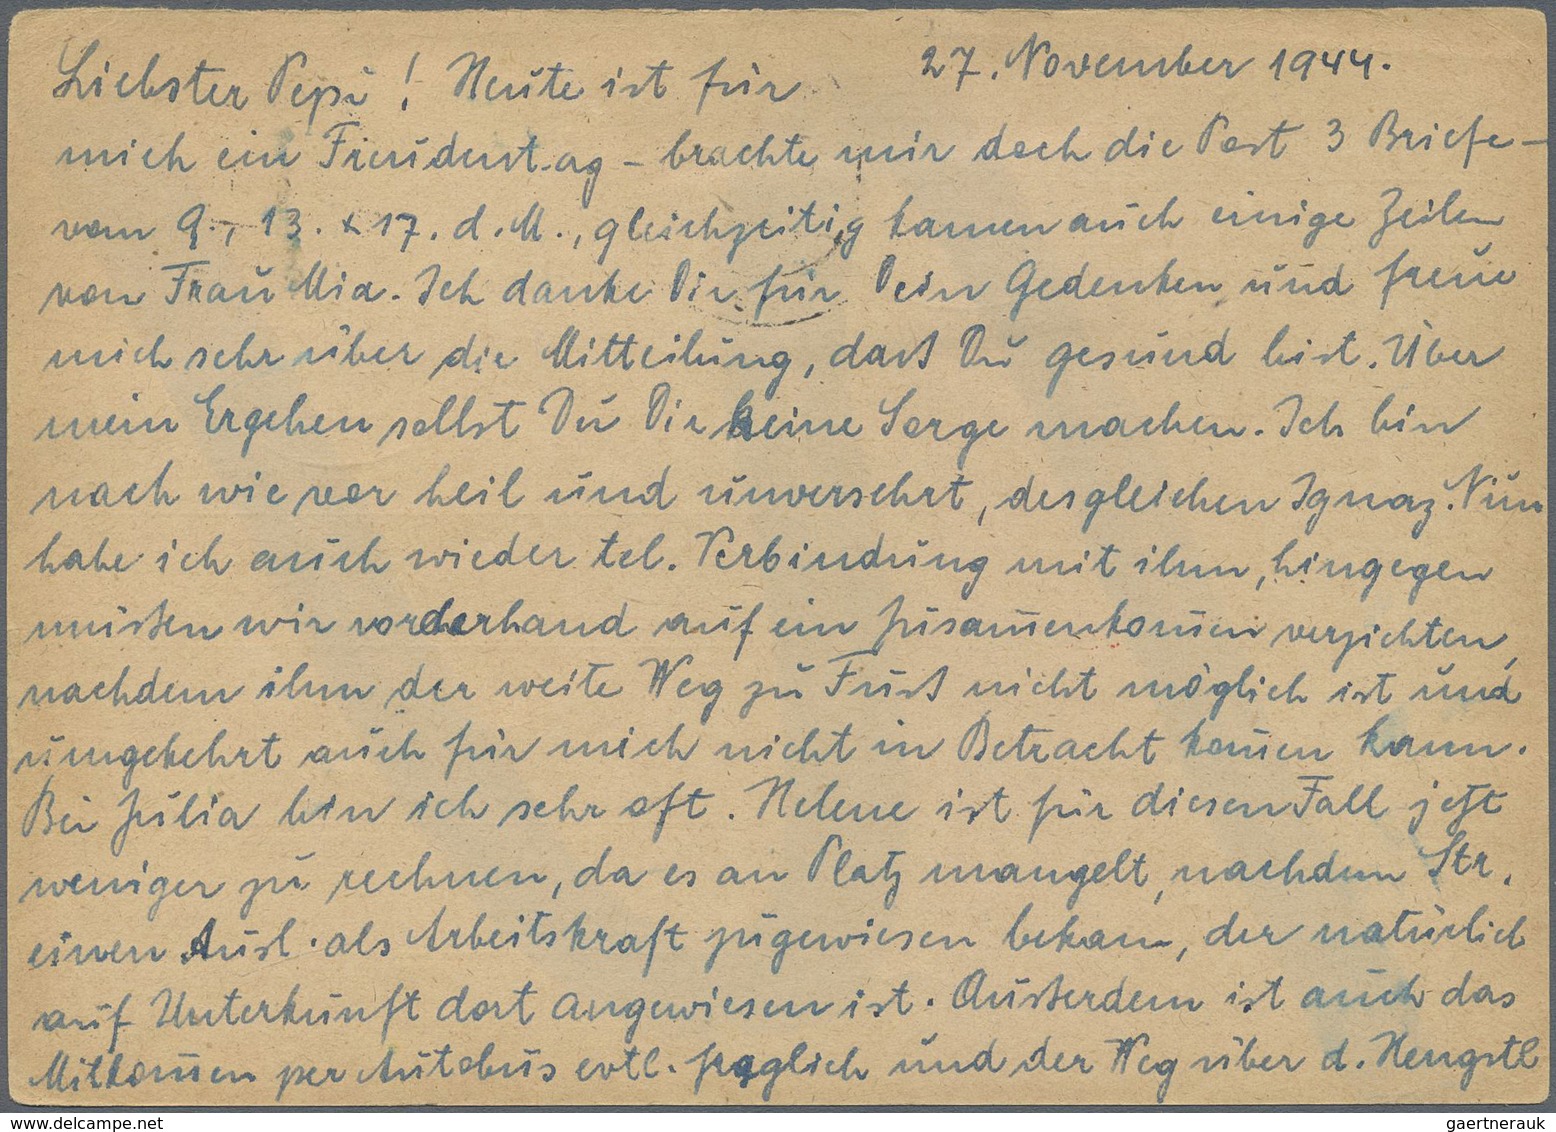 27. November 1944.
Liebster Pepi! Heute ist für
mich ein Freudentag – brachte mir doch die Post 3 Briefe –
vom 9., 13. & 17. d. M., gleichzeitig kamen auch einige Zeilen
von Frau Mia. Ich danke Dir für Dein Gedenken und freue
mich sehr über die Mitteilung, dass Du gesund bist. Über
mein Ergehen sollst Du Dir keine Sorge machen. Ich bin
nach wie vor heil und unversehrt, desgleichen Ignaz. Nun
habe ich auch wieder tel. Verbindung mit ihm, hingegen
müssen wir vorderhand auf ein Zusam̅enkom̅en verzichten,
nachdem ihm der weite Weg zu Fuß nicht möglich ist und
umgekehrt auch für mich nicht in Betracht kom̅en kann.
Bei Julia bin ich sehr oft. Helene ist für diesen Fall jetzt
weniger zu rechnen, da es an Platz mangelt, nachdem Str.
einen Ausl. als Arbeitskraft zugewiesen bekam, der natürlich
auf Unterkunft dort angewiesen ist. Ausserdem ist auch das
Mitkom̅en per Autobus evtl. fraglich und der Weg über d. Hengstl
gaertnerauk